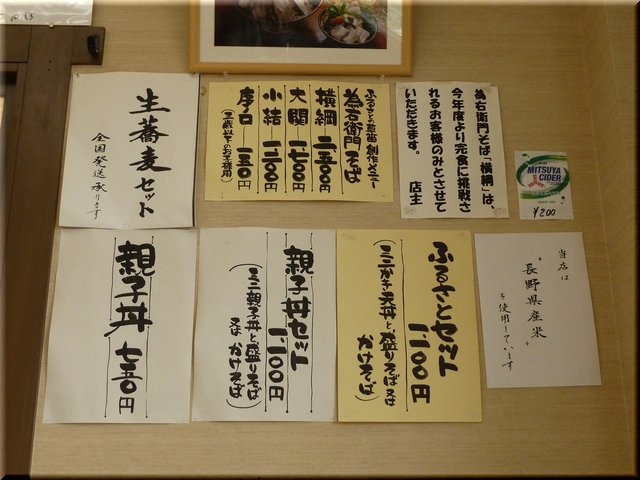 生蕎麦セット
全国発送承ります
ふるさとの草笛 創作メニュー
為右衛門そば
横綱
大関 一七〇〇
小結
序ノ口 一五〇
(三歳以下のお子様用)
為右衛門そば「横綱」は、
今年度より完食に挑戦さ
れるお客様のみとさせて
いただきます。
店主
MITSUYA
CIDER
¥200
親子丼 七五〇円
親子丼セット
1.100円
(ミニ親子丼と盛りそば
又は かけそば)
ふるさとセット
1.100円
天丼と、盛りそば又は
かけそば)
当店は
"長野県産米"
を使用しています